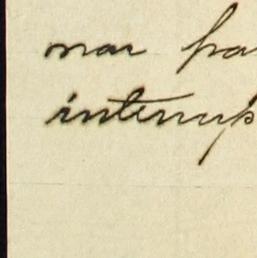 mar pa
interrup